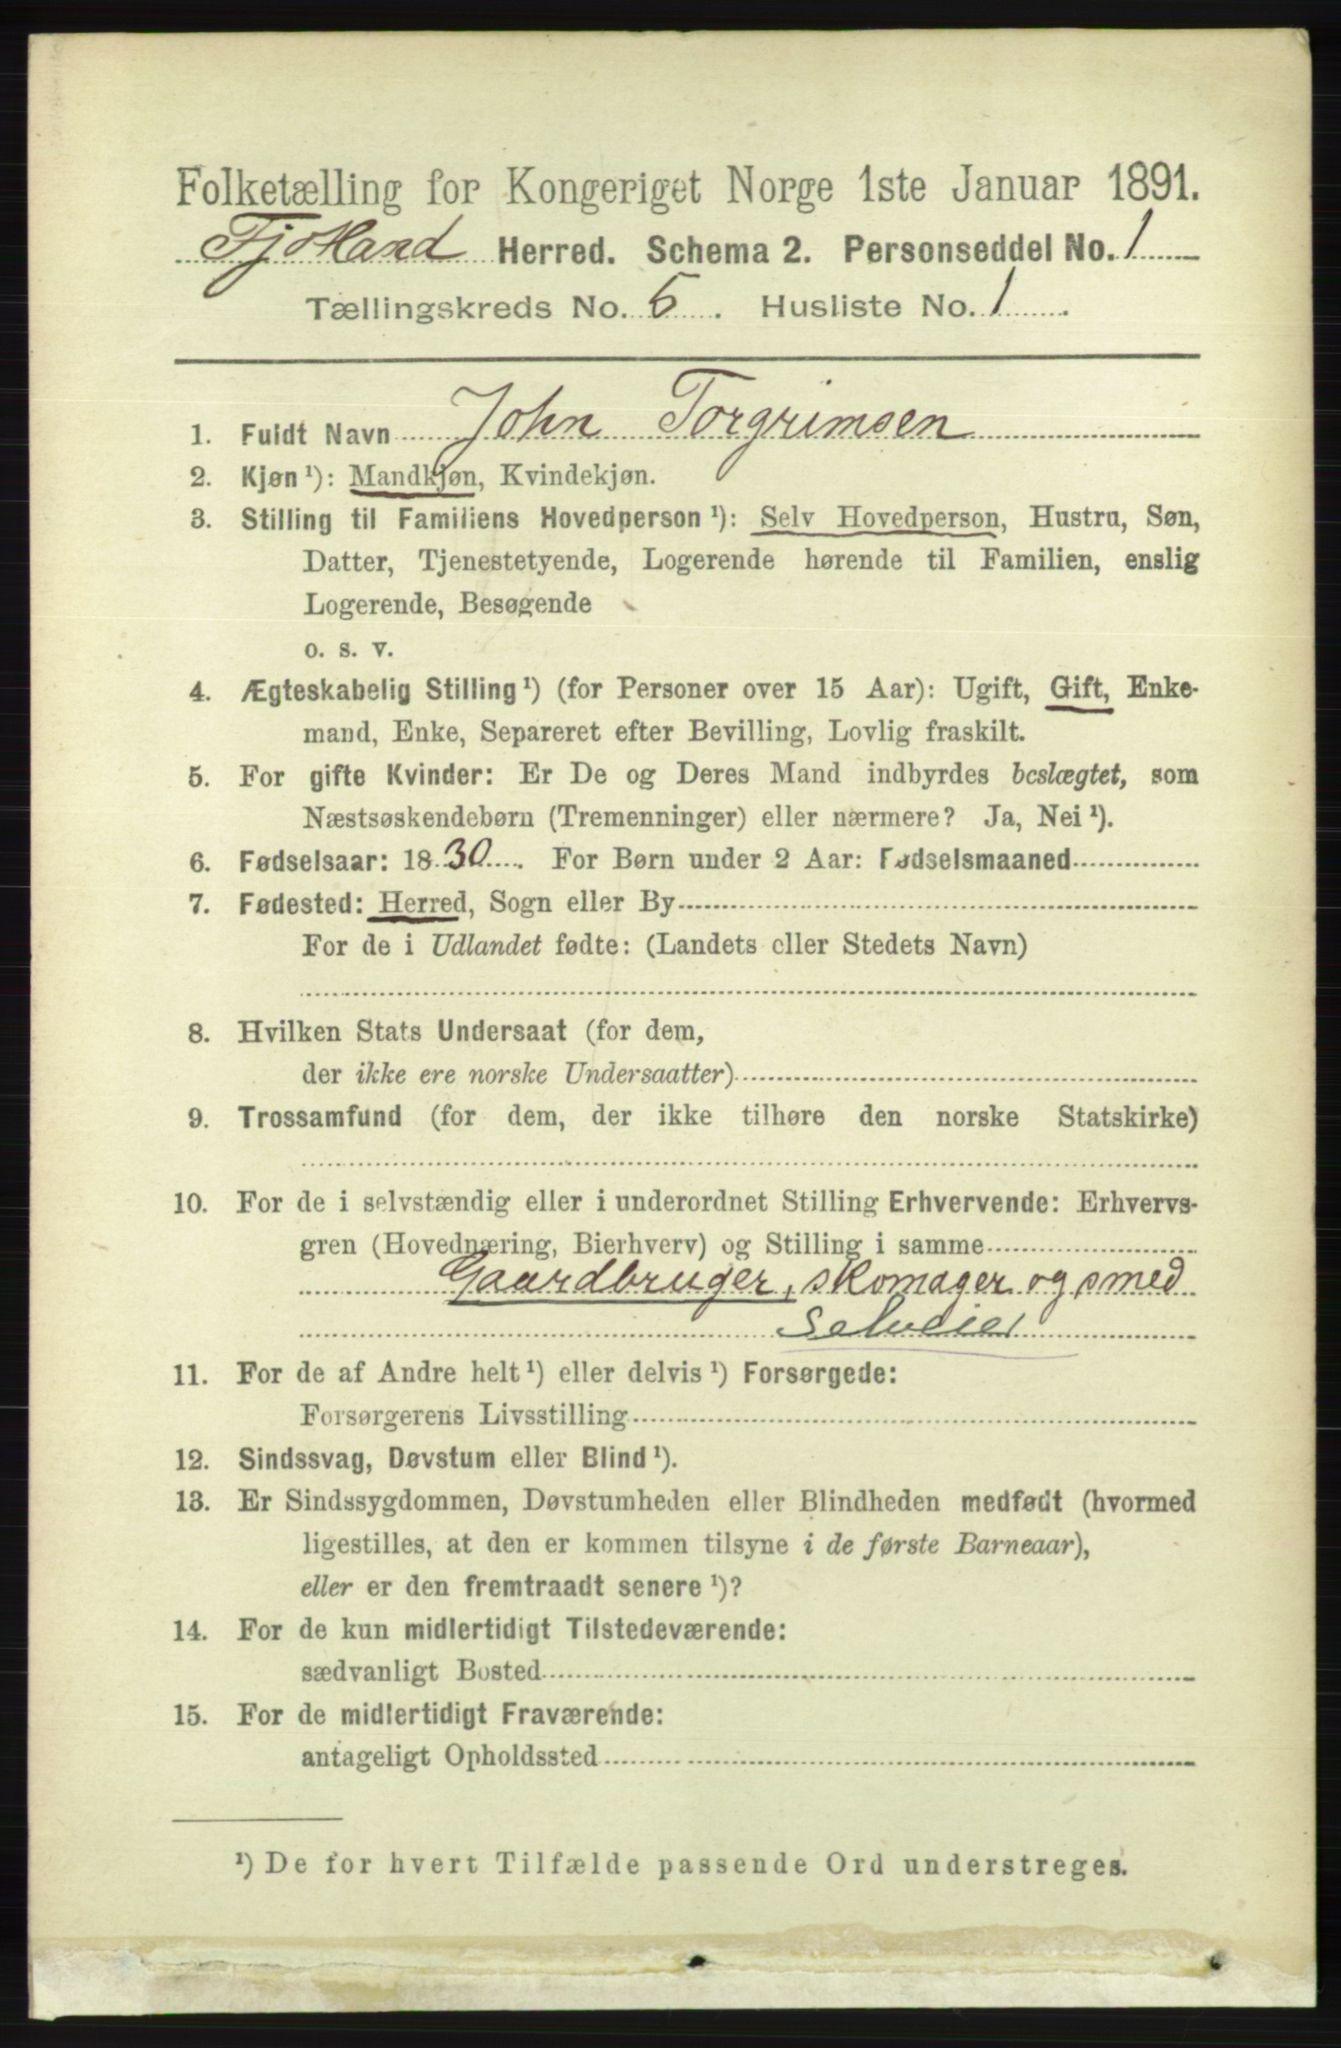 Folketælling for Kongeriget Norge 1ste Januar 1891.
Fjotland Herred. Schema 2. Personseddel No. 1
Tællingskreds No. 5. Husliste No. 1.
1. Fuldt Navn John Torgrimsen
2. Kjøn ¹): Mandkjøn, Kvindekjøn.
3. Stilling til Familiens Hovedperson ¹): Selv Hovedperson, Hustru, Søn,
Datter, Tjenestetyende, Logerende hørende til Familien, enslig
Logerende, Besøgende
o. s. v.
4. Ægteskabelig Stilling ¹) (for Personer over 15 Aar): Ugift, Gift, Enke-
mand, Enke, Separeret efter Bevilling, Lovlig fraskilt.
5. For gifte Kvinder: Er De og Deres Mand indbyrdes beslægtet, som
Næstsøskendebørn (Tremenninger) eller nærmere? Ja, Nei ¹).
6. Fødselsaar: 1830. For Børn under 2 Aar: Fødselsmaaned
7. Fødested: Herred, Sogn eller By
For de i Udlandet fødte: (Landets eller Stedets Navn)
8. Hvilken Stats Undersaat (for dem,
der ikke ere norske Undersaatter)
9. Trossamfund (for dem, der ikke tilhøre den norske Statskirke)
10. For de i selvstændig eller i underordnet Stilling Erhvervende: Erhvervs-
gren (Hovednæring, Bierhverv) og Stilling i samme
Gaardbruger, skomager og smed
Selveier
11. For de af Andre helt ¹) eller delvis ¹) Forsørgede:
Forsørgerens Livsstilling
12. Sindssvag, Døvstum eller Blind ¹).
13. Er Sindssygdommen, Døvstumheden eller Blindheden medfødt (hvormed
ligestilles, at den er kommen tilsyne i de første Barneaar),
eller er den fremtraadt senere ¹)?
14. For de kun midlertidigt Tilstedeværende:
sædvanligt Bosted
15. For de midlertidigt Fraværende:
antageligt Opholdssted
¹) De for hvert Tilfælde passende Ord understreges.